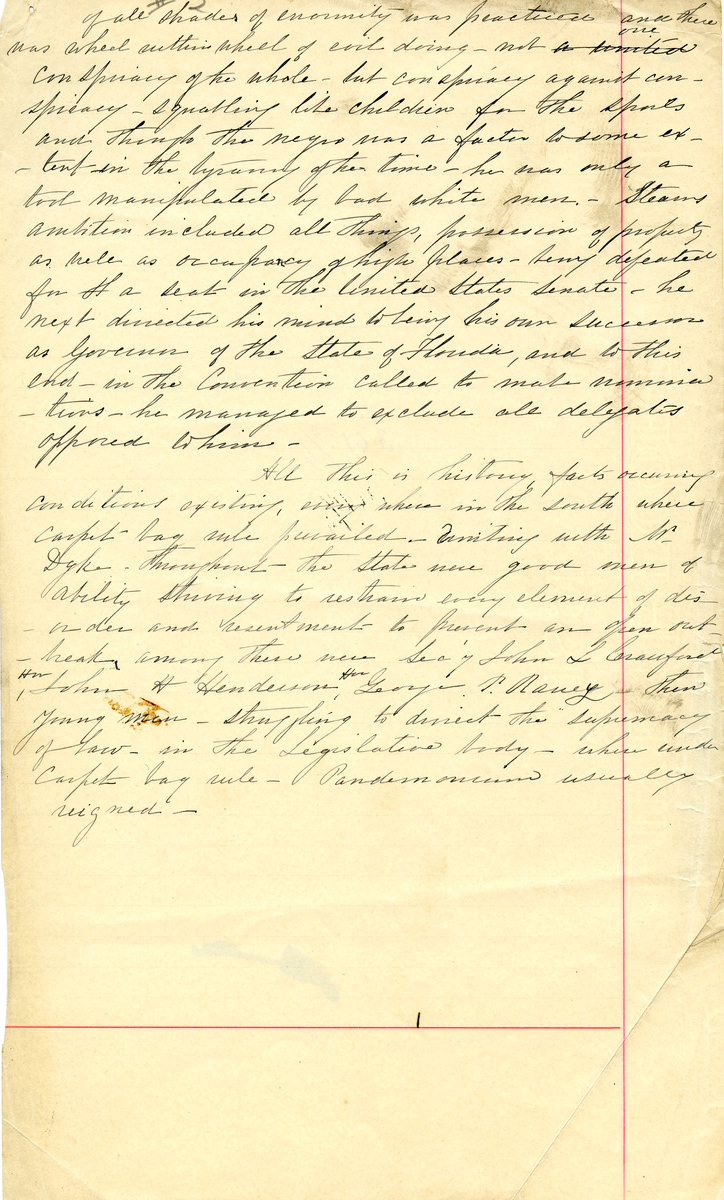 of all shades of enormity was practiced and there
was wheel within wheel of evil doing - not a united one
conspiracy of the whole - but conspiracy against con-
spiracy - squabling like children for the spoils
and though the negro was a factor to some ex-
-tent in the tyranny of the time - he was only a
tool manipulated by bad white men. - Stearns
ambition included all things, possession of property
as well as occupancy of high places - being defeated
for a seat in the United States Senate - he
next directed his mind to being his own successor
as Governor of the State of Florida, and to this
end - in the Convention called to make nomina
-tions - he managed to exclude all delegates
opposed to him -
All this is history, facts occurring
conditions existing, every where in the south where
carpet bag rule prevailed. - Uniting with Mr
Dyke - throughout the State were good men of
ability striving to restrain every element of dis
-order and resentment to prevent an open out
-break, among these were Sec'y John L Crawford
Hon John H Henderson, Hon George P. Raney - then
young men - struggling to direct the supremacy
of law - in the Legislative body - where under
Carpet bag rule - Pandemonium usually
reigned -